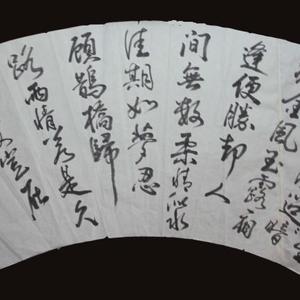 暗
金風玉露一相
逢便勝却人
間無數柔情似水
佳期如夢忍
顧鵲橋歸
路兩情若是久
豈在